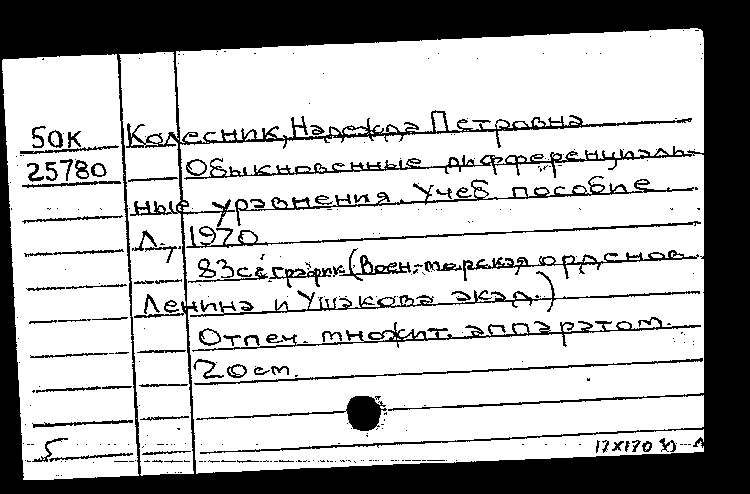 50К Колесник, Надежда Петровна
25780 Обыкновенные дифференциаль-
ные уравнения. Учеб пособие.
Л., 1970
83с с график (Воен.-морская орденов
Ленина и Ушакова акад.)
Отпеч. множит. аппаратом.
20см.
5
17XI70